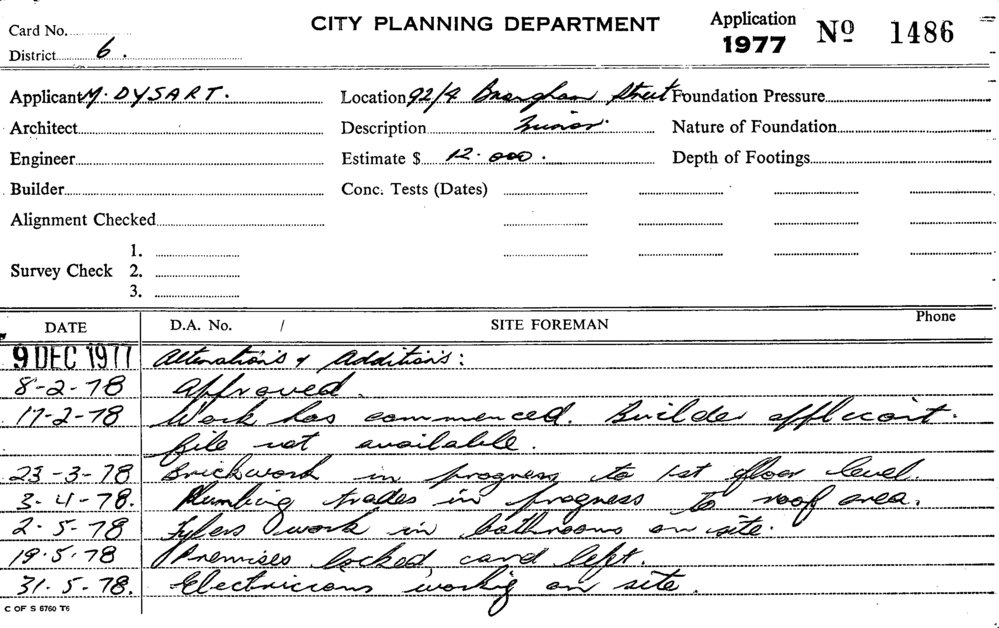 CITY PLANNING DEPARTMENT
Card No.
District 6.
Application 1977 No 1486
Applicant M. DYSART. Location 92/4 Street Foundation Pressure
Architect Description Minor. Nature of Foundation
Engineer Estimate $ 12.000. Depth of Footings
Builder Conc. Tests (Dates)
Alignment Checked
1.
Survey Check 2.
3.
DATE D.A. No. / SITE FOREMAN Phone
9 DEC 1977 Alterations & Additions:
8-2-78 Approved.
17-2-78 Work has commenced. Builder applicant.
file not available.
23-3-78 Brickwork in progress to 1st floor level.
3-4-78. Plumbing trades in progress to roof area.
2-5-78 Tylers work in bathrooms on site.
19.5.78 Premises locked card left.
31.5-78. Electricians working on site.
C OF S 6760 T6